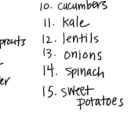 10. cucumbers
11. kale
12. lentils
13. onions
14. spinach
15. sweet
potatoes